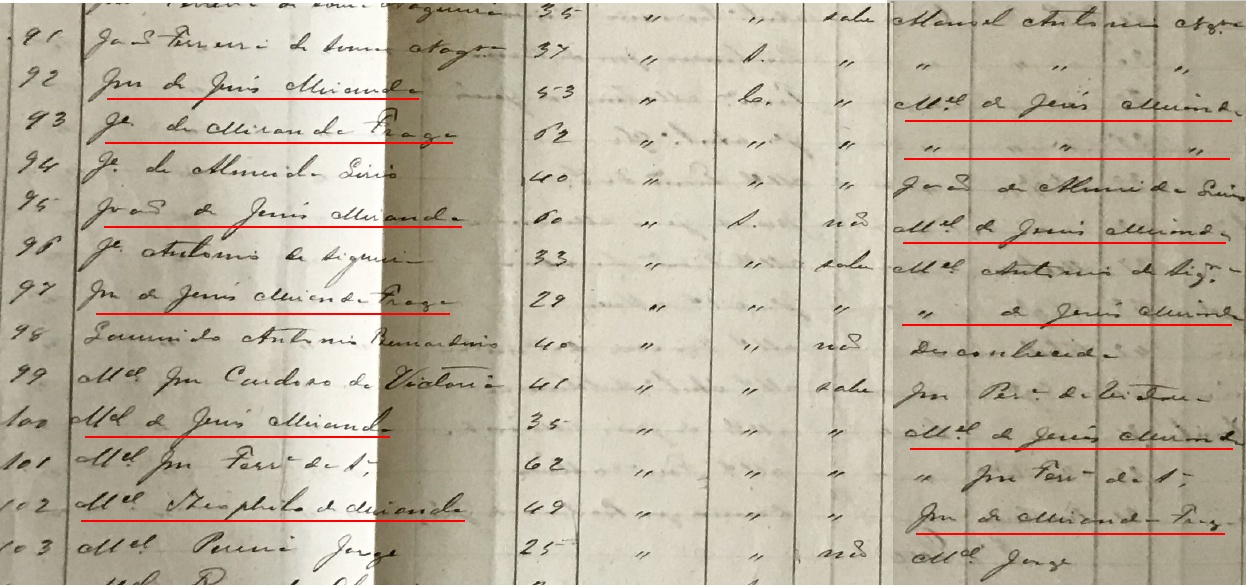 35 " " sabe Manoel Antonio Nogra
91 João Ferreira de Souza Nogra 37 " S. " " " "
92 Jm de Jesús Miranda 53 " Ca. " Mel de Jesús Miranda
93 Je. de Miranda Fraga 62 " " " " " "
94 Je. de Almeida Lirio 40 " " " João de Almeida Lirio
95 João de Jesús Miranda 60 " S. não Mel de Jesús Miranda
96 Je. Antonio de Siqueira 33 " " sabe Mel Antonio de Siqra
97 Jm de Jesús Miranda Fraga 29 " " " " de Jesús Miranda
98 Antonio Bernardino 40 " " não Desconhecido
99 Mel Jm Cardoso da Victoria 41 " " sabe Jm Pera da Victoria
100 Mel de Jesús Miranda 35 " " " Mel de Jesús Miranda
101 Mel Jm Ferra de Sa 62 " " " " Jm Ferra de Sa
102 Mel Theophilo de Miranda 49 " " " Jm de Miranda Fraga
103 Mel Pereira Jorge 25 " " não Mel Jorge